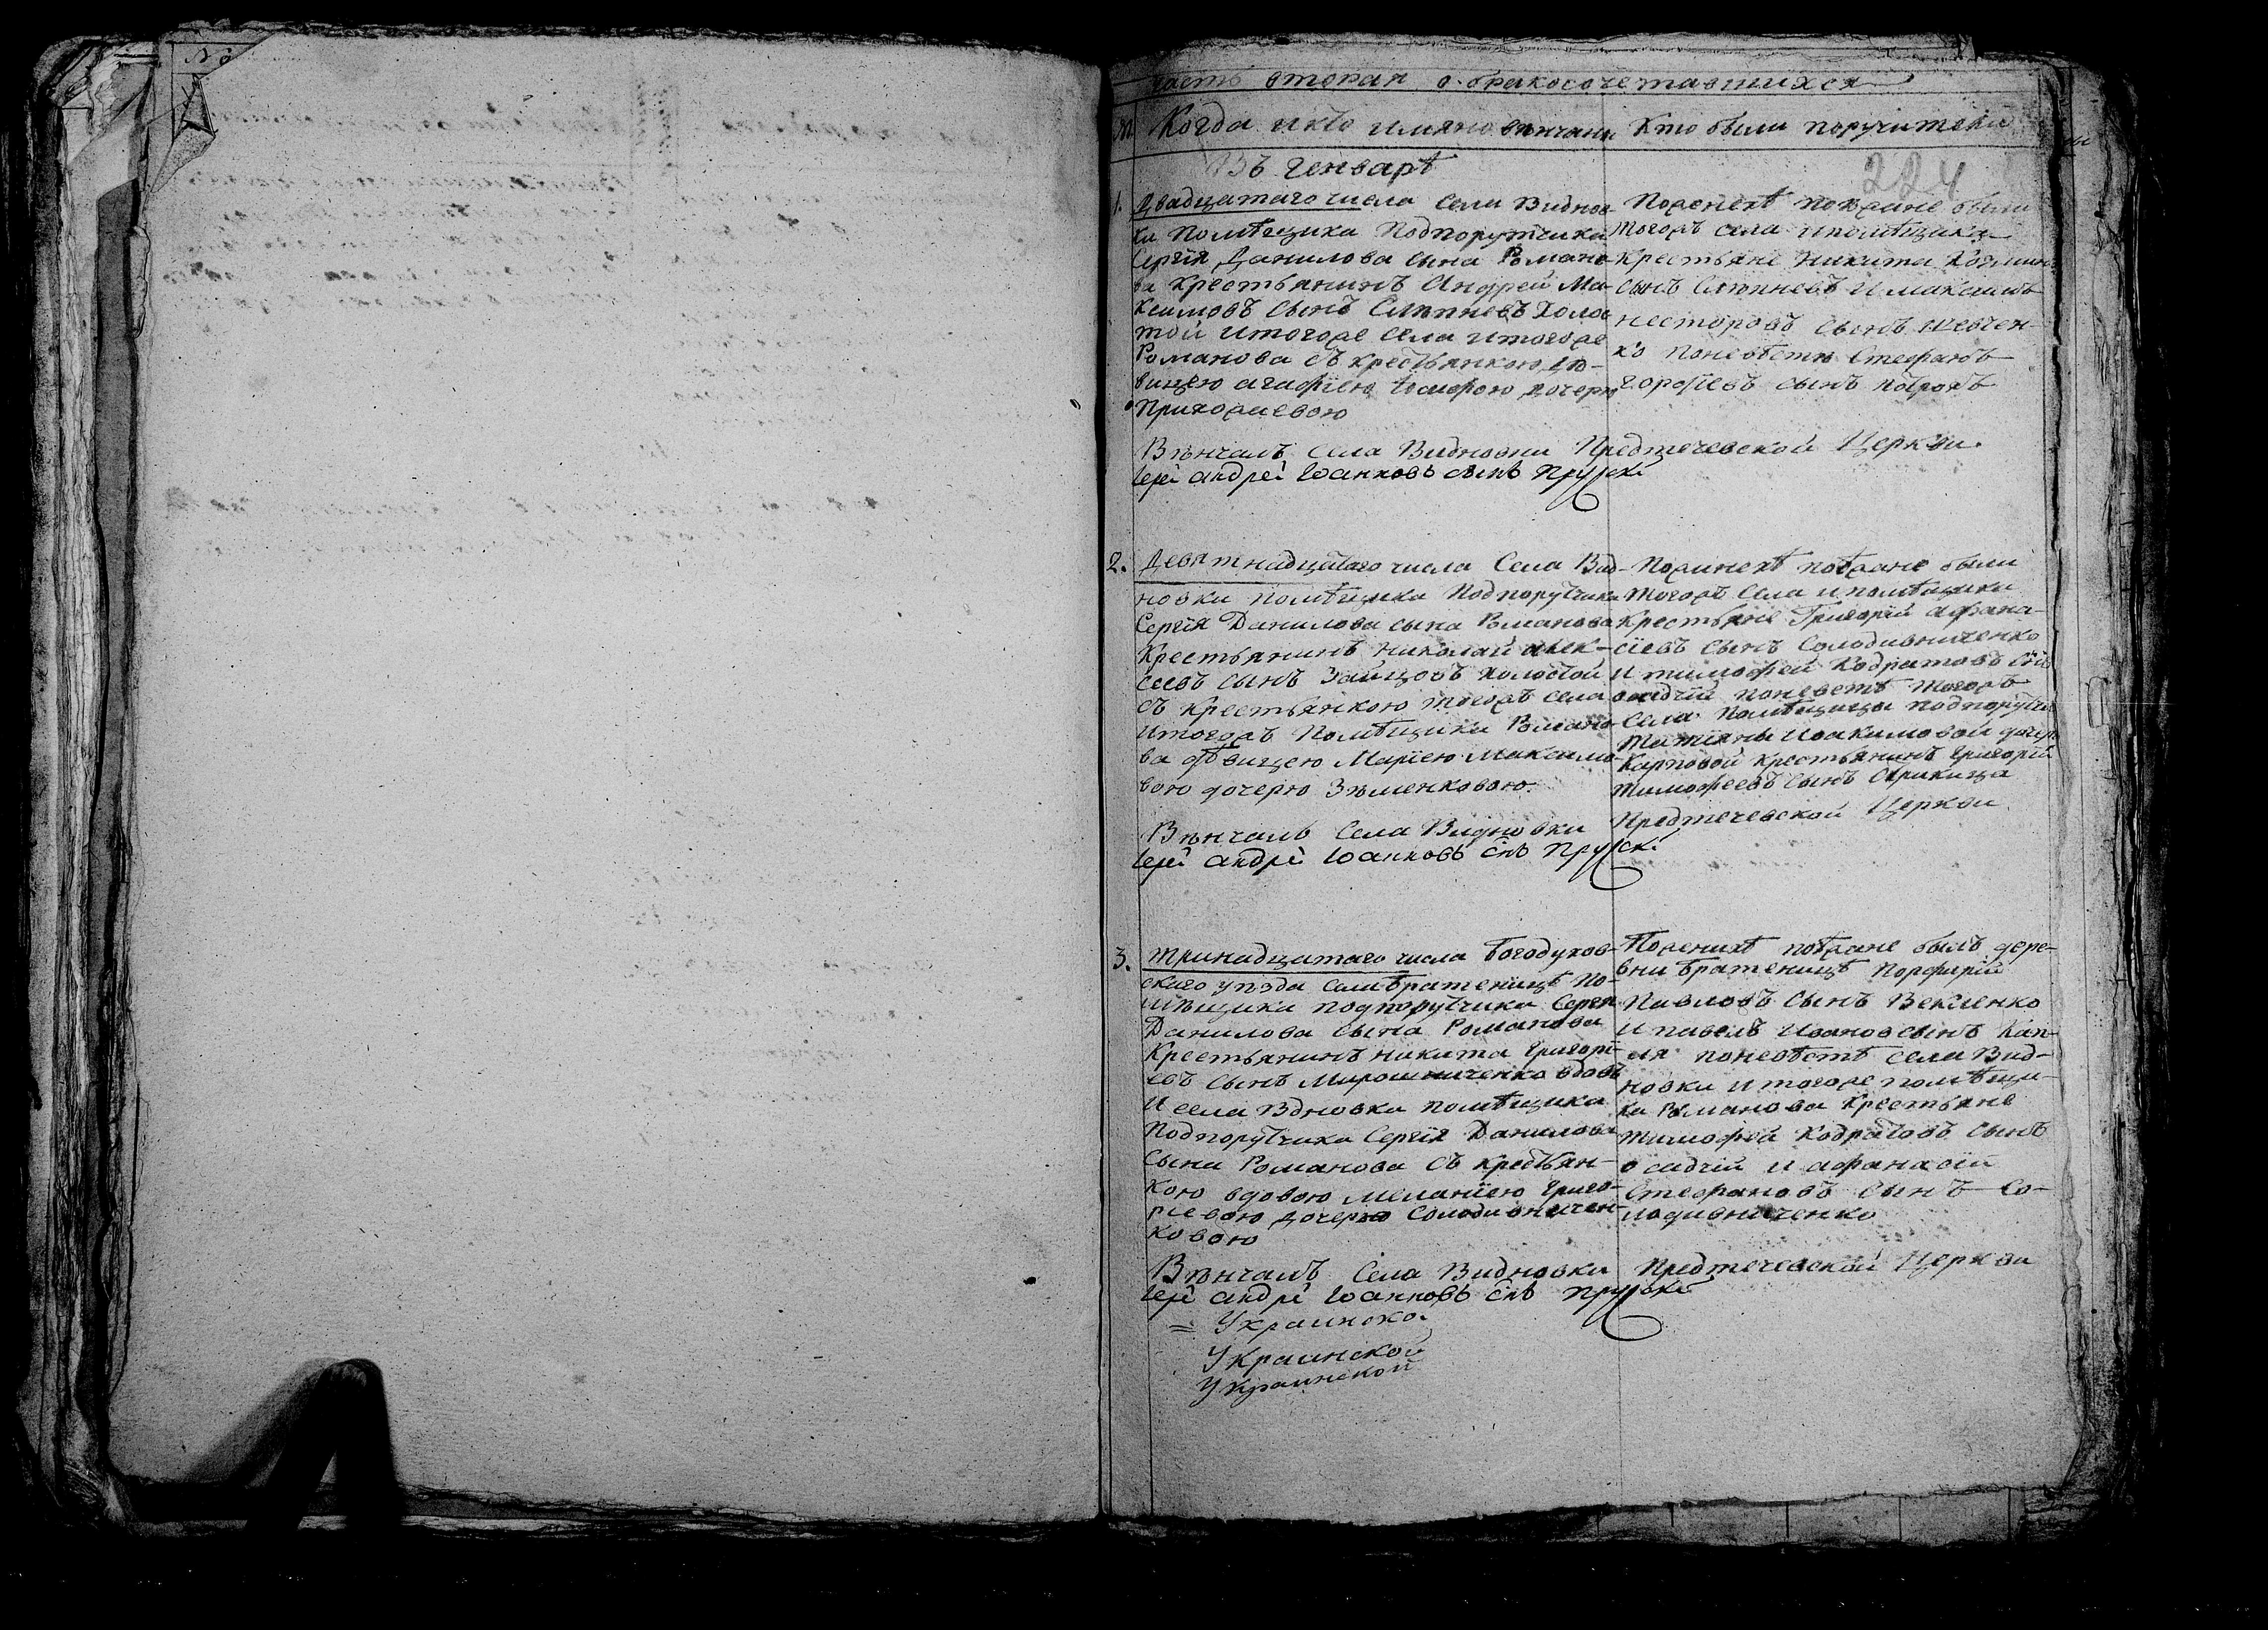 №
часть вторая о бракосочетавшихся
№ Когда и кто имяно венчаны
Кто были поручители
224
Въ Генварѣ
1. Двадцатаго числа Села Виднов-
ки Помѣщика Подпорутчика
Сергія Данилова сына Романо-
ва Крестьянинъ Андрей Ма-
ксимовъ сынъ холос
той и тогоже села и тогоже
Романова съ крестьянкою дѣ-
вицею агафіею дочерю
По женихѣ поѣзжане были
тогожъ села и помѣщика
Крестьяне Никита
сынъ и максимъ
несторовъ сынъ шевчен-
ко по невѣстѣ Стефанъ
сынъ
Вѣнчалъ Села Видновки Предтечевской Церкви
Іерей андрей Іоанновъ сынъ
2. Девятнадцатаго числа Села Вид-
новки помѣщика Подпорутчика
Сергія Данилова сына Романова
Крестьянинъ николай алек-
сеевъ сынъ Зайцовъ холостой
съ крестьянкою тогожъ села
и тогожъ Помѣщика Романо-
ва дѣвицею Маріею Максимо-
вою дочерю Зѣленковою
По жинехѣ поѣзжане были
тогожъ Села и помѣщика
Крестьяне Григорій афана-
сіевъ сынъ Солодивниченко
и тимофей Кодратовъ снъ
осадчій по невестѣ тогожъ
Села Помѣщицы подпорутчи
татіяны Иоакимовой дочер
Карповой крестьянинъ Григорій
тимофеевъ сынъ
Вѣнчалъ Села Видновки Предтечевской Церкви
Іерей андрей Іоанновъ снъ
3. тринадцатаго числа Богодухов-
скаго уѣзда Братеницѣ По-
мѣщика подпорутчика Сергія
Данилова сына Романова
Крестьянинъ никита Григорі-
евъ сынъ Мирошниченко вдовъ
и села Вдновка помѣщика
Подпорутчика Сергія Данилова
сына Романова съ крестьян-
кою вдовою меланіею Григо-
ріевою дочерю Солодивничен-
ковою
По женихѣ поѣзжане былъ дере-
вни Братеницѣ Порфирій
Павловъ сынъ Векленко
и павелъ Ивановъ сынъ Кап-
ля по невѣстѣ села Вид-
новки и тогоже помѣщи-
ка Романова Крестьяне
тимофей Кодратовъ сынъ
осадчій и афанасій
Стефановъ сынъ Со-
лодивниченко
Вѣнчалъ Села Видновки Предтечевской Церкви
Іерей андрей Іоанновъ снъ
= Украинской
Украинской
Украинской